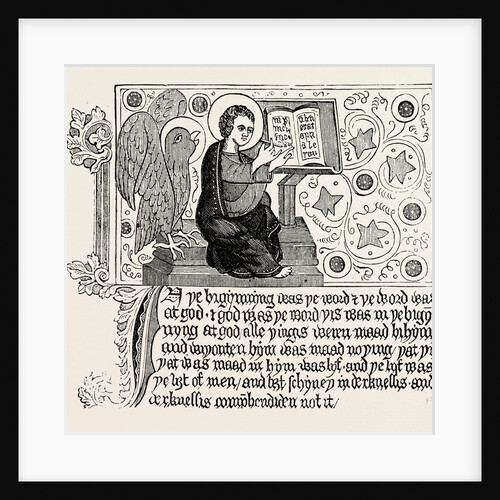 In ye bigynnyng was ye word & ye word was
at god · & god was ye word yis was in ye bigyn
nyng at god alle yingis weren maad bi hym
and wiyouten hym was maad no ying / yat yi
yat was maad in hym was lyf · and ye lyf was
ye liyt of men / and liyt schyney in derknessis · and
derknessis comprehendiden not it /